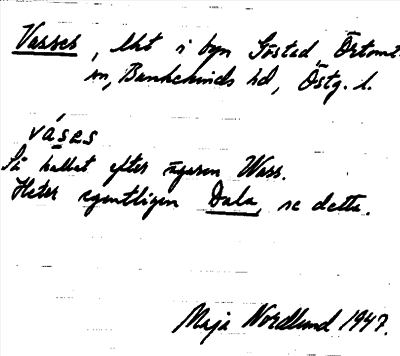 Vasses, lht i byn Gösstad, Örtomt.
sn, Bankekinds hd, Östg. l.
váses
Så kallat efter ägaren Wass.
Heter egentligen Dala, se detta.
Maja Nordlund 1947.